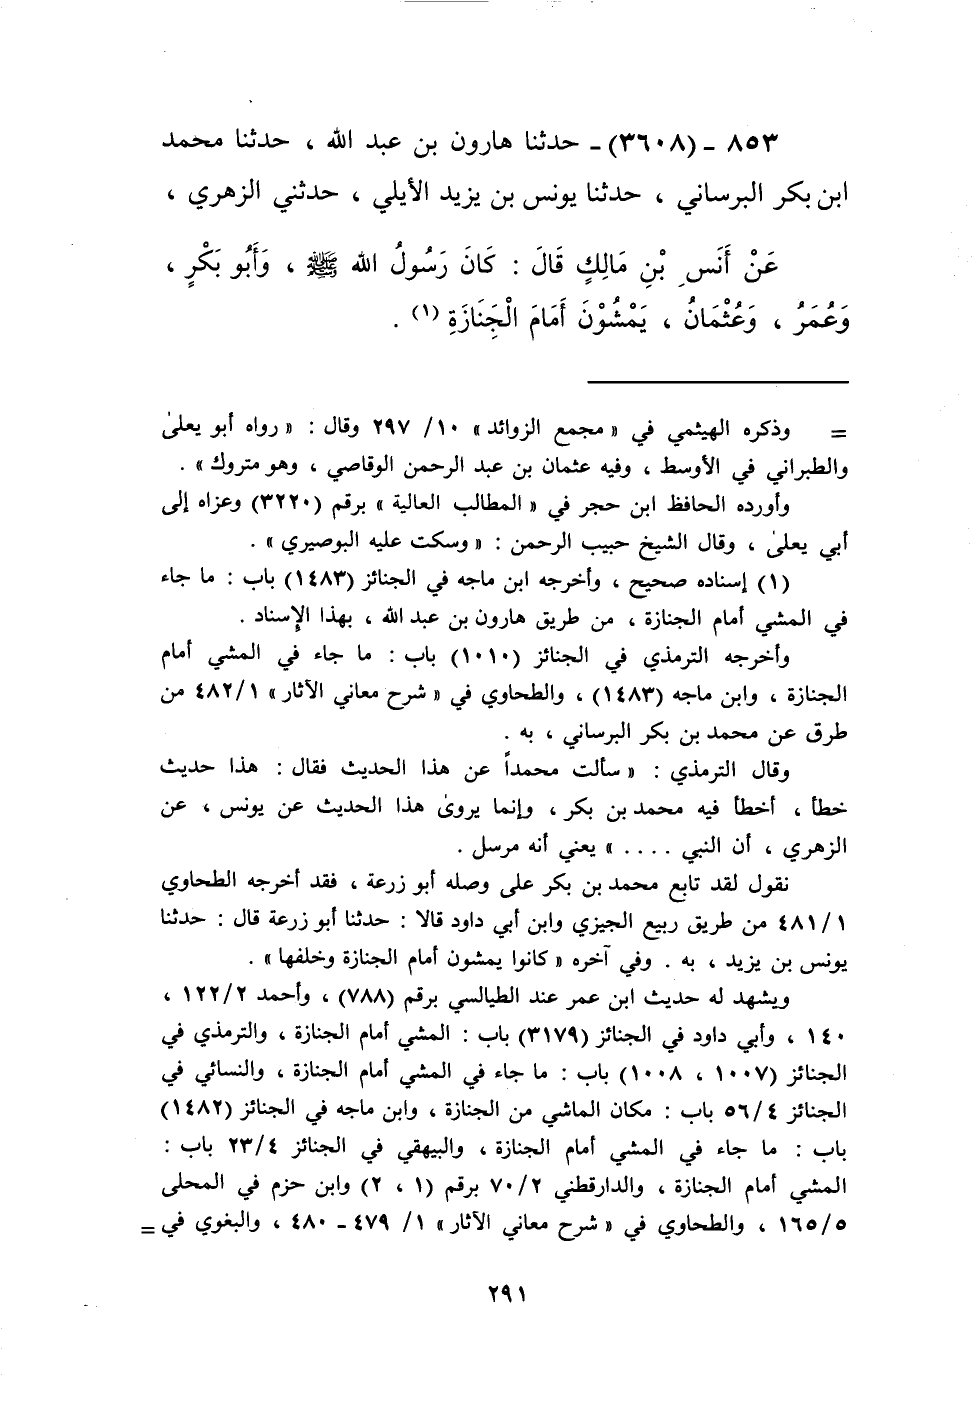 ٨٥٣ ـ (٣٦٠٨) ـ حدثنا هارون بن عبد الله ، حدثنا محمد
ابن بكر البرساني ، حدثنا يونس بن يزيد الأيلي ، حدثني الزهري ،
عَنْ أَنَسِ بْنِ مَالِكٍ قَالَ : كَانَ رَسُولُ الله ﷺ ، وَأَبُو بَكْرٍ ،
وَعُمَرُ ، وَعُثْمَانُ ، يَمْشُوْنَ أَمَامَ الْجَنَازَةِ (١) .
= وذكره الهيثمي في « مجمع الزوائد » ١٠/ ٢٩٧ وقال : « رواه أبو يعلىٰ
والطبراني في الأوسط ، وفيه عثمان بن عبد الرحمن الوقاصي ، وهو متروك » .
وأورده الحافظ ابن حجر في « المطالب العالية » برقم (٣٢٢٠) وعزاه إلى
أبي يعلىٰ ، وقال الشيخ حبيب الرحمن : « وسكت عليه البوصيري » .
(١) إسناده صحيح ، وأخرجه ابن ماجه في الجنائز (١٤٨٣) باب : ما جاء
في المشي أمام الجنازة ، من طريق هارون بن عبد الله ، بهذا الإسناد .
وأخرجه الترمذي في الجنائز (١٠١٠) باب : ما جاء في المشي أمام
الجنازة ، وابن ماجه (١٤٨٣) ، والطحاوي في « شرح معاني الآثار » ٤٨٢/١ من
طرق عن محمد بن بكر البرساني ، به .
وقال الترمذي : « سألت محمداً عن هذا الحديث فقال : هذا حديث
خطأ ، أخطأ فيه محمد بن بكر ، وإنما يروىٰ هذا الحديث عن يونس ، عن
الزهري ، أن النبي .... » يعني أنه مرسل .
نقول لقد تابع محمد بن بكر على وصله أبو زرعة ، فقد أخرجه الطحاوي
٤٨١/١ من طريق ربيع الجيزي وابن أبي داود قالا : حدثنا أبو زرعة قال : حدثنا
يونس بن يزيد ، به . وفي آخره « كانوا يمشون أمام الجنازة وخلفها » .
ويشهد له حديث ابن عمر عند الطيالسي برقم (٧٨٨) ، وأحمد ١٢٢/٢ ،
١٤٠ ، وأبي داود في الجنائز (٣١٧٩) باب : المشي أمام الجنازة ، والترمذي في
الجنائز (١٠٠٧ ، ١٠٠٨) باب : ما جاء في المشي أمام الجنازة ، والنسائي في
الجنائز ٥٦/٤ باب : مكان الماشي من الجنازة ، وابن ماجه في الجنائز (١٤٨٢)
باب : ما جاء في المشي أمام الجنازة ، والبيهقي في الجنائز ٢٣/٤ باب :
المشي أمام الجنازة ، والدارقطني ٧٠/٢ برقم (١ ، ٢) وابن حزم في المحلى
١٦٥/٥ ، والطحاوي في « شرح معاني الآثار » ١/ ٤٧٩ ـ ٤٨٠ ، والبغوي في =
٢٩١